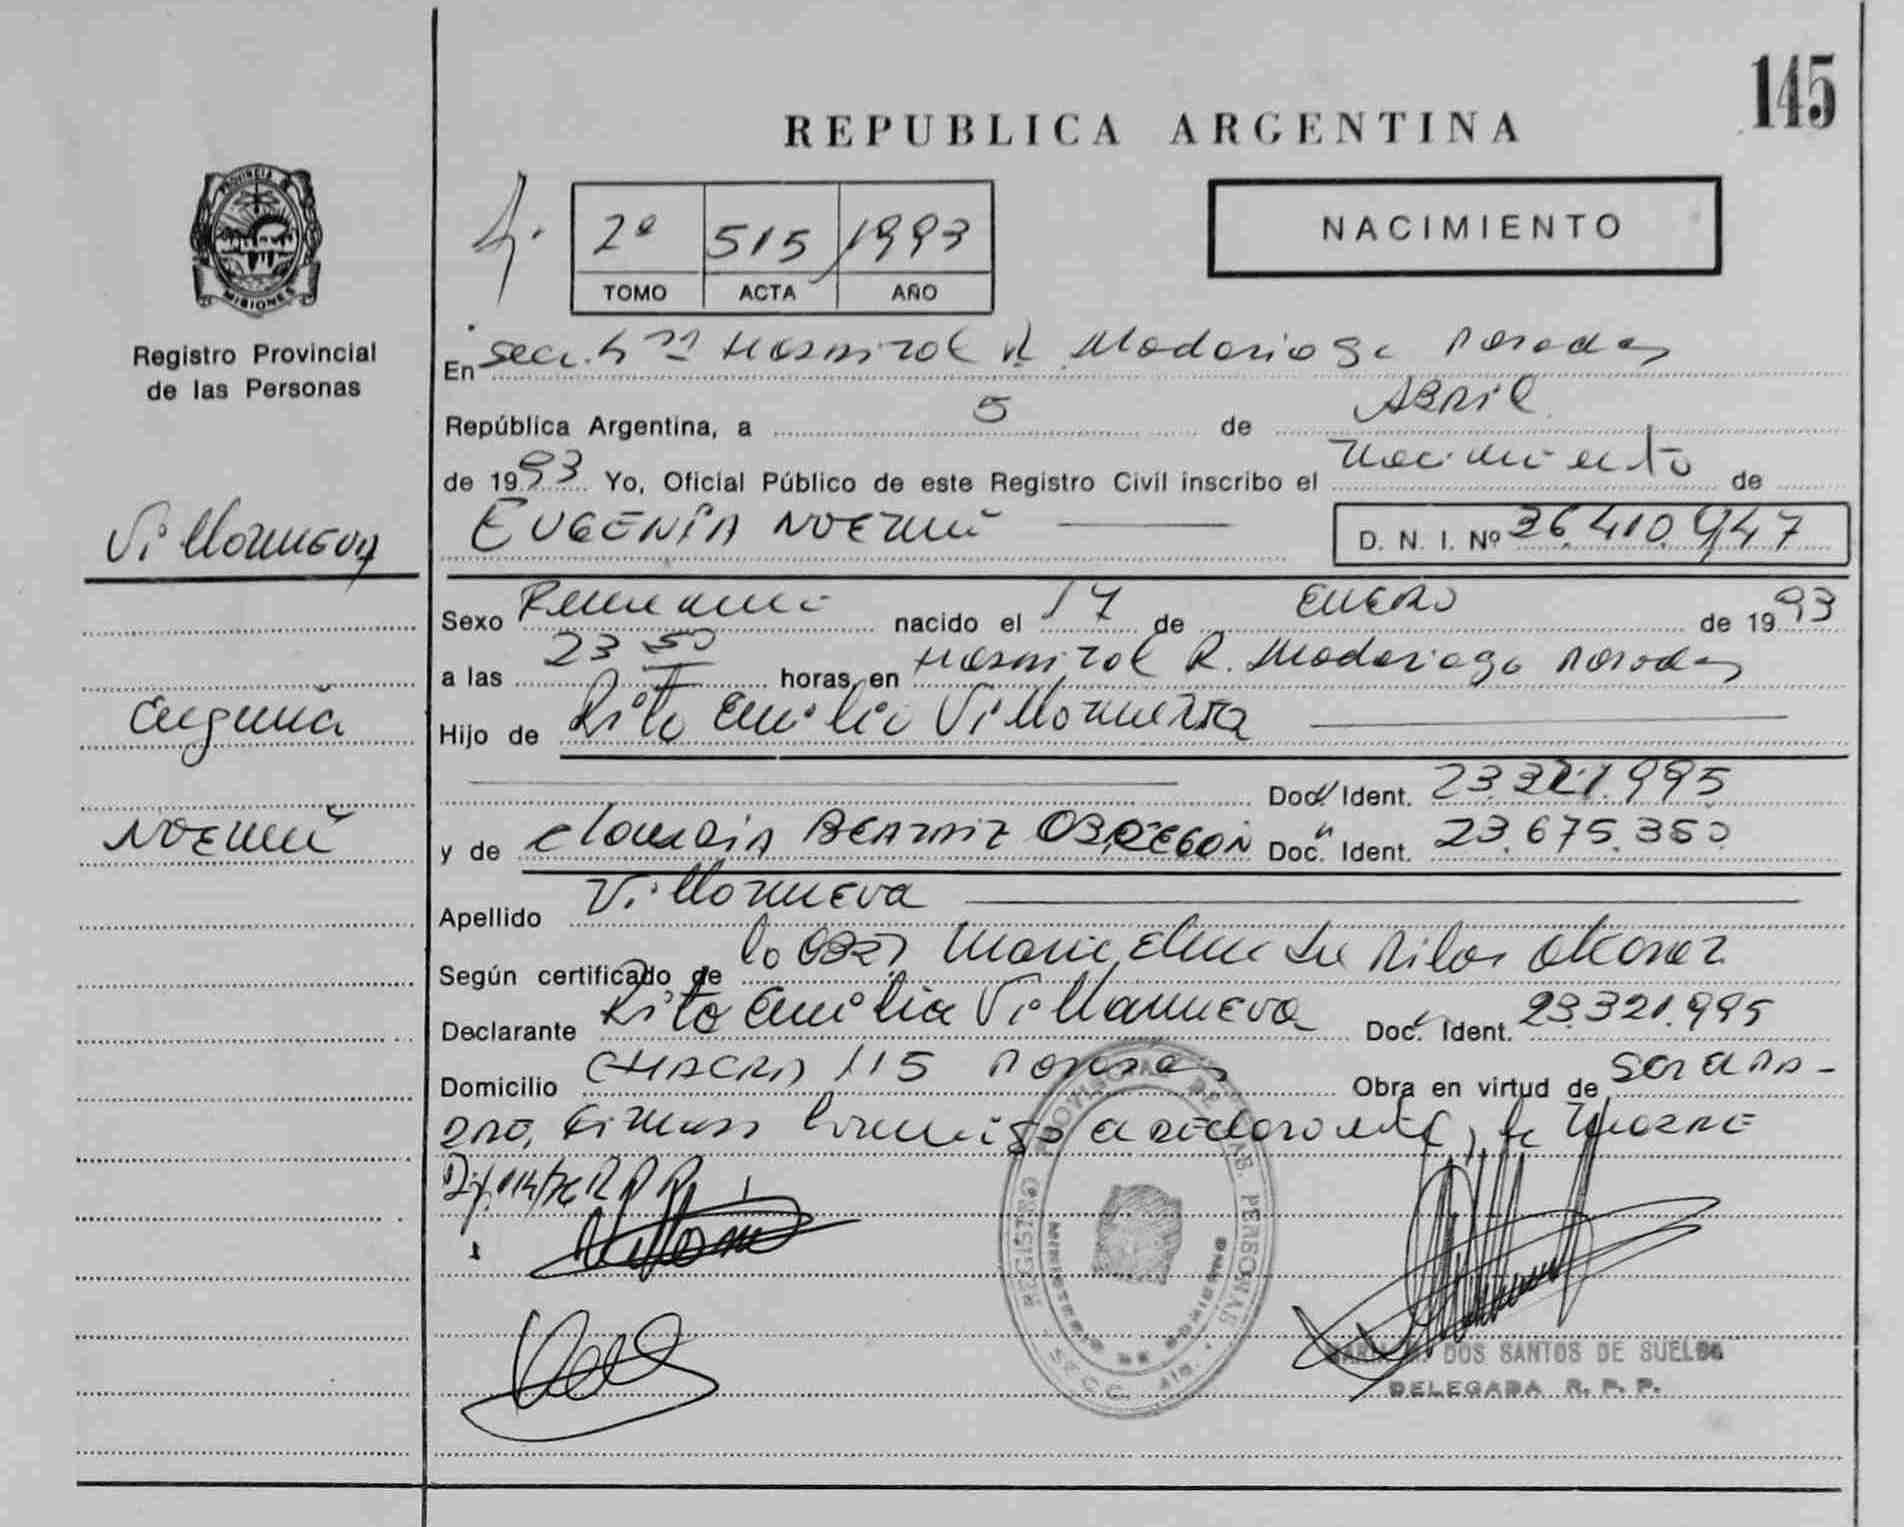 145
REPUBLICA ARGENTINA
PROVINCIA DE
MISIONES
Registro Provincial
de las Personas
2º 515 1993
TOMO ACTA AÑO
NACIMIENTO
En Secc. 4ta Hospital R. Madariaga Posadas
República Argentina, a 5 de Abril
de 1993 Yo, Oficial Público de este Registro Civil inscribo el Nacimiento de
Villanueva
EUGENIA NOEMÍ
D. N. I. Nº 36.410.947
Sexo Femenino nacido el 17 de ENERO de 1993
a las 23 50 horas, en Hospital R. Madariaga Posadas
Eugenia
Hijo de Rito Emilio Villanueva
Doc. Ident. 23.321.995
NOEMÍ
y de Claudia BEATRIZ OBREGON Doc. Ident. 23.675.350
Apellido Villanueva
Según certificado de María Elena
Declarante Rito Emilio Villanueva Doc. Ident. 23.321.995
Domicilio CHACRA 115 Posadas Obra en virtud de
Firman conmigo el declarante, la madre
REGISTRO PROVINCIAL DE LAS PERSONAS
MINISTERIO DE GOBIERNO
DOS SANTOS DE SUELDO
DELEGADA R. P. P.